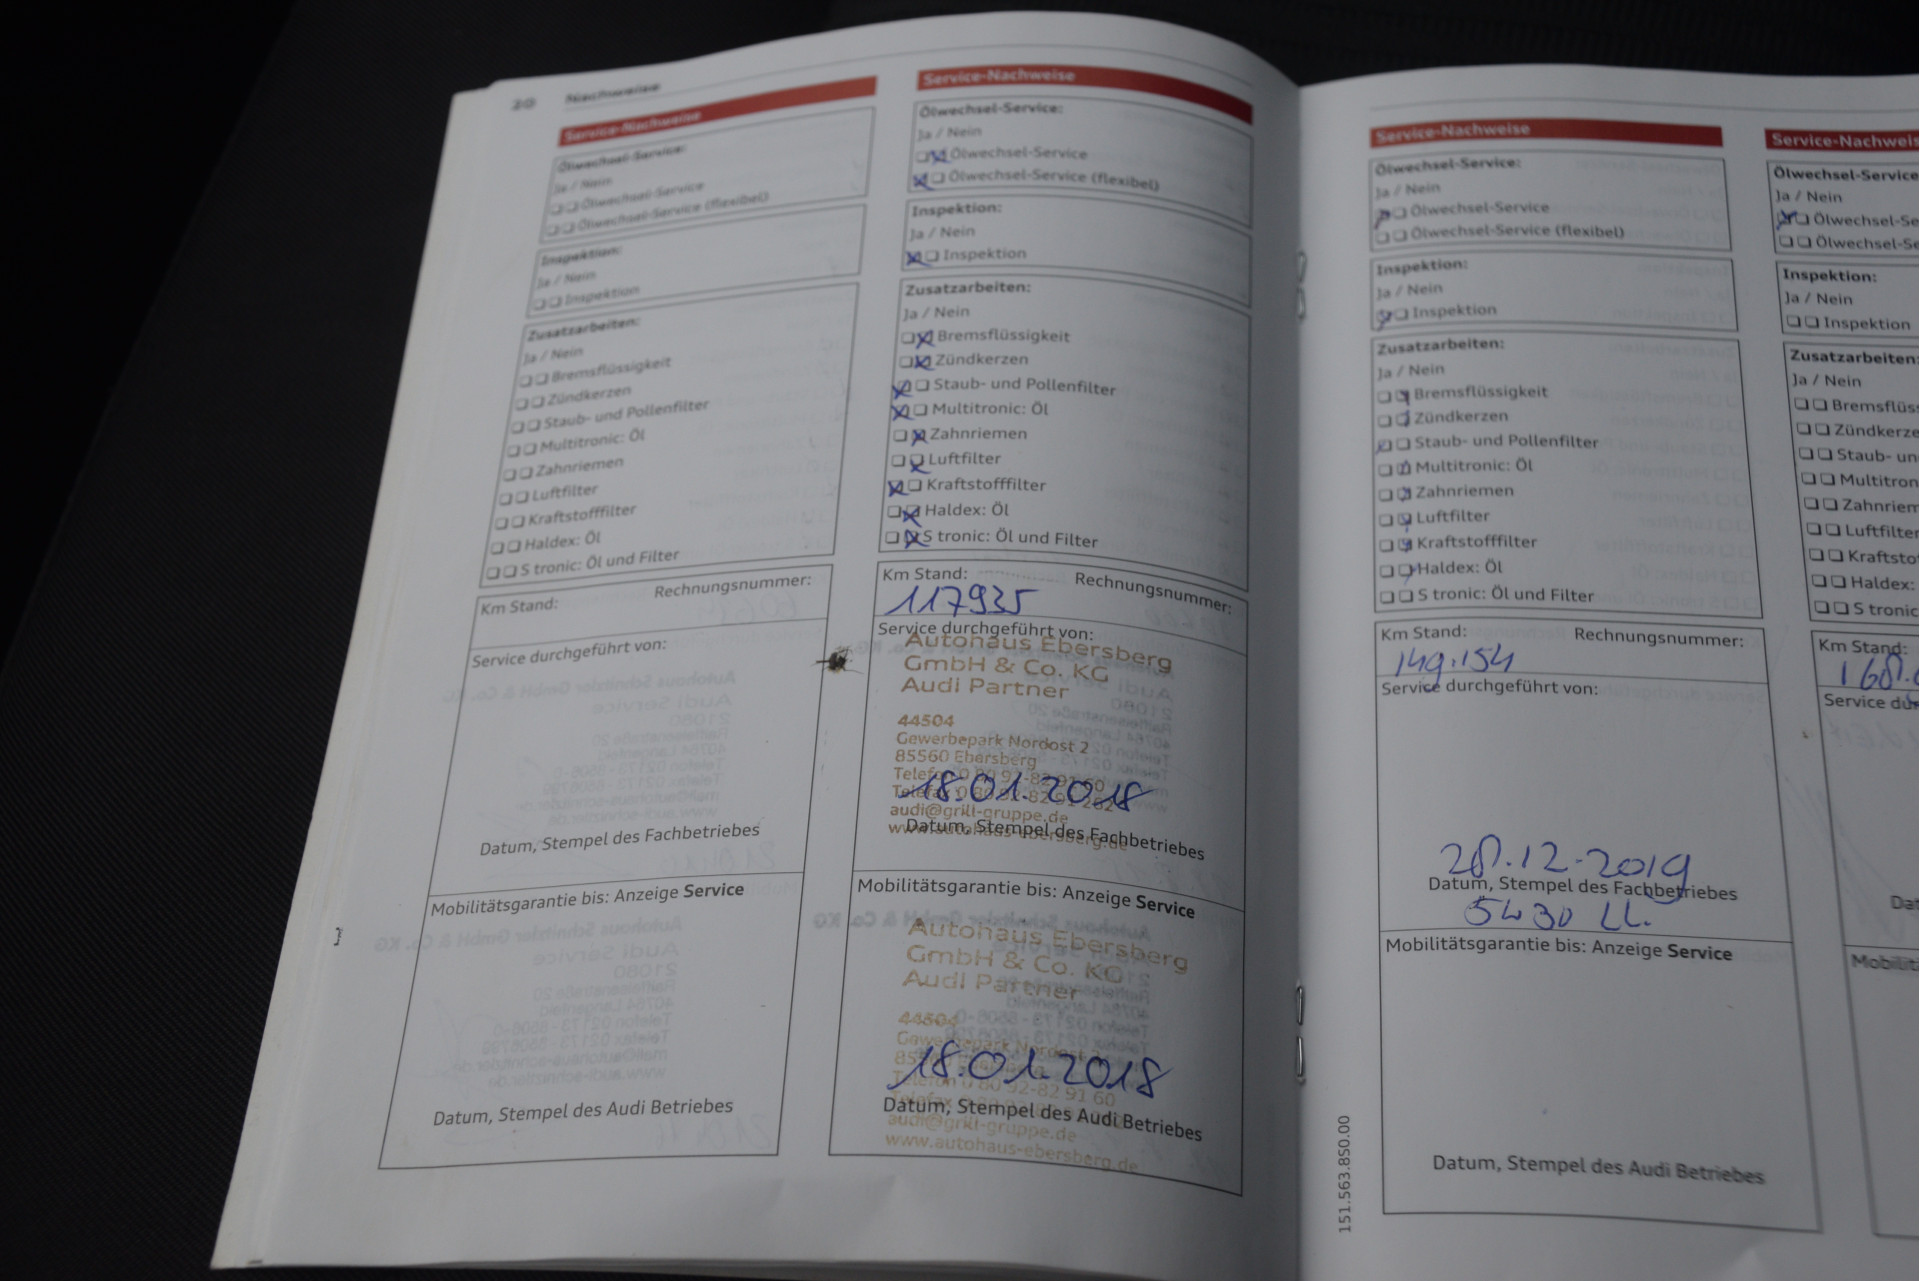 20 Nachweise
Service-Nachweise
Ölwechsel-Service:
Ja / Nein
Ölwechsel-Service
Ölwechsel-Service (flexibel)
Inspektion:
Ja / Nein
Inspektion
Zusatzarbeiten:
Ja / Nein
Bremsflüssigkeit
Zündkerzen
Staub- und Pollenfilter
Multitronic: Öl
Zahnriemen
Luftfilter
Kraftstofffilter
Haldex: Öl
S tronic: Öl und Filter
Km Stand: Rechnungsnummer:
Service durchgeführt von:
Datum, Stempel des Fachbetriebes
Mobilitätsgarantie bis: Anzeige Service
Datum, Stempel des Audi Betriebes
Service-Nachweise
Ölwechsel-Service:
Ja / Nein
Ölwechsel-Service
Ölwechsel-Service (flexibel)
Inspektion:
Ja / Nein
Inspektion
Zusatzarbeiten:
Ja / Nein
Bremsflüssigkeit
Zündkerzen
Staub- und Pollenfilter
Multitronic: Öl
Zahnriemen
Luftfilter
Kraftstofffilter
Haldex: Öl
S tronic: Öl und Filter
Km Stand: Rechnungsnummer:
117935
Service durchgeführt von:
Autohaus Ebersberg
GmbH & Co. KG
Audi Partner
44504
Gewerbepark Nordost 2
85560 Ebersberg
Telefon 0 80 92-82 91 60
Telefax 0 80 92-82 91 262
18.01.2018
audi@grill-gruppe.de
www.autohaus-ebersberg.de
Datum, Stempel des Fachbetriebes
Mobilitätsgarantie bis: Anzeige Service
Autohaus Ebersberg
GmbH & Co. KG
Audi Partner
44504
Gewerbepark Nordost
85560 Ebersberg
Telefon 0 80 92-82 91 60
18.01.2018
Telefax 0 80 92
Datum, Stempel des Audi Betriebes
audi@grill-gruppe.de
www.autohaus-ebersberg.de
Service-Nachweise
Ölwechsel-Service:
Ja / Nein
Ölwechsel-Service
Ölwechsel-Service (flexibel)
Inspektion:
Ja / Nein
Inspektion
Zusatzarbeiten:
Ja / Nein
Bremsflüssigkeit
Zündkerzen
Staub- und Pollenfilter
Multitronic: Öl
Zahnriemen
Luftfilter
Kraftstofffilter
Haldex: Öl
S tronic: Öl und Filter
Km Stand: Rechnungsnummer:
149.154
Service durchgeführt von:
28.12.2019
Datum, Stempel des Fachbetriebes
Mobilitätsgarantie bis: Anzeige Service
Datum, Stempel des Audi Betriebes
151.563.850.00
Service-Nachweis
Ölwechsel-Service
Ja / Nein
Ölwechsel-Se
Ölwechsel-Se
Inspektion:
Ja / Nein
Inspektion
Zusatzarbeiten:
Ja / Nein
Bremsflüss
Zündkerze
Staub- un
Multitron
Zahnriem
Luftfilter
Kraftsto
Haldex:
S tronic
Km Stand:
Service du
Dat
Mobilit